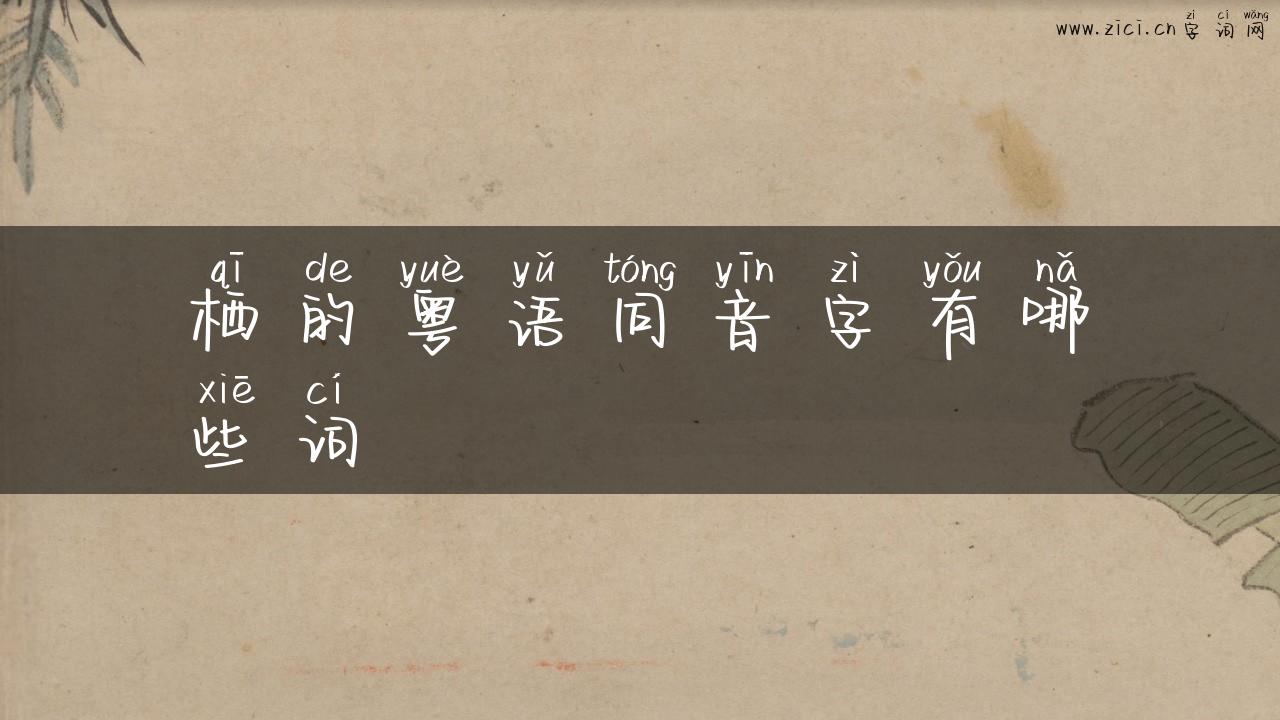 zì cí wǎng
www.zici.cn 字词网
qī de yuè yǔ tóng yīn zì yǒu nǎ
栖的粤语同音字有哪
xiē cí
些词